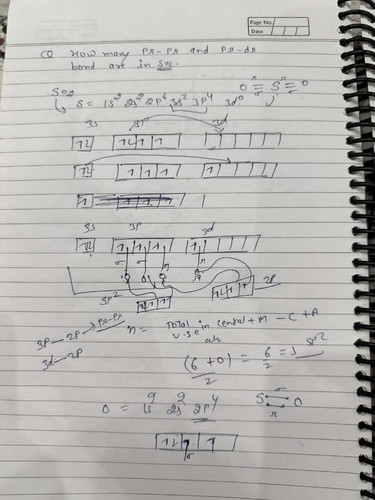 Page No.
Date
Q How many Pπ-Pπ and Pπ-dπ
bond are in SO2
SO2
O = S = O
S = 1s² 2s² 2p⁶ 3s² 3p⁴ 3d⁰
3s 3p 3d
3s 3p 3d
σ σ π π
SP² 2p
3P — 2P → Pπ-Pπ
3d — 2P
n = Total V.se in central + M - C + A
(6 + 0) / 2 = 6/2 = 3 SP²
O = 1s² 2s² 2p⁴
S O
σ
π
σ